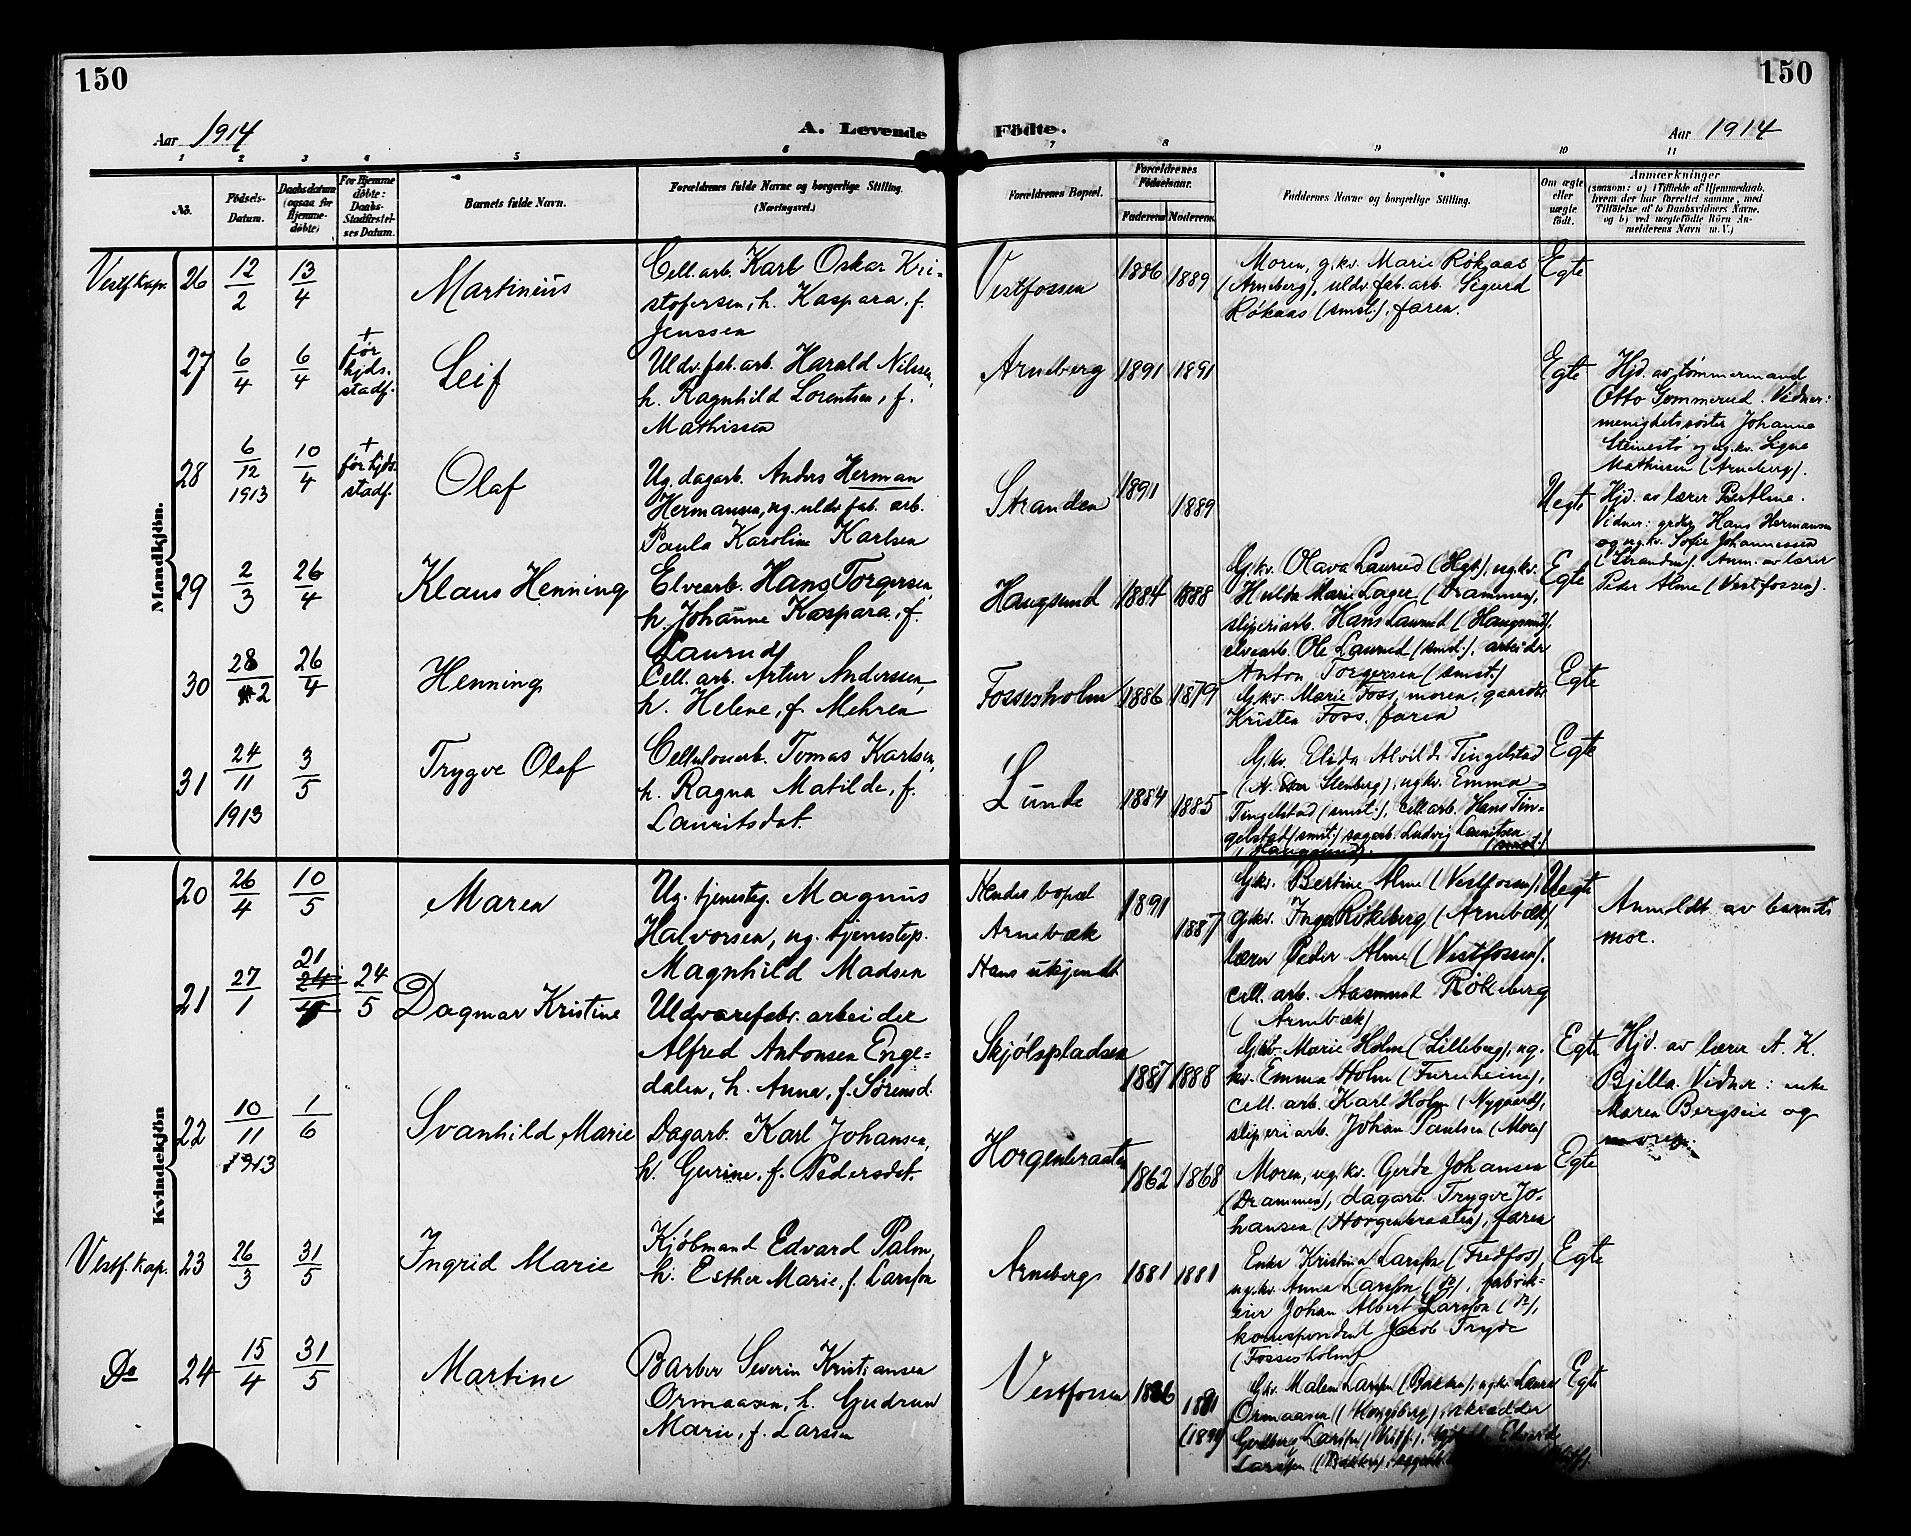 150
150
Aar 1914
A. Levende
Födte.
Aar 1914
1 2 3 4 5 6 7 8 9 10 11
No.
Födsels-
Datum.
Daabsdatum
(ogsaa for
Hjemme-
döbte)
For Hjemme
döbte:
Daabs-
Stadfæstel-
ses Datum.
Barnets fulde Navn.
Forældrenes fulde Navne og borgerlige Stilling.
(Næringsvei.)
Forældrenes Bopæl.
Forældrenes
Födselsaar.
Faderens Moderens
Faddernes Navne og borgerlige Stilling.
Om ægte
eller
uægte
födt.
Anmærkninger
(saasom: a) i Tilfælde af Hjemmedaab,
hvem der har forrettet samme, med
Tilföielse af to Daabsvidners Navne,
og b) ved uegtefödte Börn An-
melderens Navn m. V.)
Mandkjön.
Vestf. kap. 26 12/2 13/4
Martinius
Cell. arb. Karl Oskar Kri-
stofersen, h. Kaspara, f.
Jenssen
Vestfossen
1886 1889
Moren, g.kv. Marie Røkaas
(Arneberg), uldv. fab. arb. Sigurd
Røkaas (smst.), faren.
Egte
27 6/4 6/4
+
før
hjds.
stadf.
Leif
Uldv. fab. arb. Harald Nilssen,
h. Ragnhild Lorentsen, f.
Mathissen
Arneberg
1891 1891
Egte
Hjd. av tømmermand
Otto Gommerud. Vidner:
menighetssøster Johanne
og ug.kv. Signe
Mathissen (Arneberg).
28 6/12 1913 10/4
+
før hjds.
stadf.
Olaf
Ug. dagarb. Anders Herman
Hermansen, ug. uldv. fab. arb.
Paula Karoline Karlsen
Stranden
1891 1889
Uegte
Hjd. av lærer Bertline.
Vidner: grdbr. Hans Hermansen
og ug.kv. Sofie Johannessen
(Stranden). Anm. av lærer
Peder Alme (Vestfossen).
29 2/3 26/4
Klaus Henning
Elvearb. Hans Torgersen,
h. Johanne Kaspara, f.
Laurud
Haugsund
1884 1888
G.kv. Olava Laurud (Hgs), ug.kv.
Hulda Marie Lager (Drammen),
sliperiarb. Hans Laurud (Haugsund),
elvearb. Ole Laurud (smst.), arbeider
Anton Torgersen (smst.)
Egte
30 28/2 26/4
Henning
Cell. arb. Artur Anderssen,
h. Helene, f. Mehren
Fossesholm
1886 1879
G.kv. Marie Foss, moren, gaardbr.
Kristen Foss, faren
Egte
31 24/11 1913 3/5
Trygve Olaf
Cellulosearb. Tomas Karlsen,
h. Ragna Matilde, f.
Lauritsdat.
Lunde
1884 1885
G.kv. Elida Alvilde Tingelstad
(N. Stenberg), ug.kv. Emma
Tingelstad (smst.), cell. arb. Hans Tin-
gelstad (smst.) sagarb. Ludvig Lauritsen
(Haugsund). (smst.)
Egte
Kvindekjön
20 26/4 10/5
Maren
Ug. tjenestg. Magnus
Halvorsen, ug. tjenestep.
Magnhild Madsen
Hendes bopæl
Arnebæk
Hans ukjendt
1891 1887
G.kv. Bertine Alme (Vestfossen),
g.kv. Inga Røkeberg (Arnebæk),
lærer Peder Alme (Vestfossen).
cell. arb. Aasmund Røkeberg
(Arnebæk)
Uegte
Anmeldt av barnets
mor.
21 27/1 21 24/5 24/5
Dagmar Kristine
Uldvarefabr. arbeider
Alfred Antonsen Enge-
dalen, h. Anna, f. Sørensd.
Skjølspladsen
1887 1888
G.kv. Marie Holm (Lilleberg), ug.
kv. Emma Holm (Fureheim),
cell. arb. Karl Holm (Nygaard),
sliperiarb. Johan Paulsen (Moen)
Egte
Hjd. av lærer A. K.
Bjella. Vidner: enke
Maren Bergseie og
moren.
22 10/11 1913 1/6
Svanhild Marie
Dagarb. Karl Johansen,
h. Gurine, f. Pedersdat.
Horgenbraaten
1862 1868
Moren, ug.kv. Gerda Johansen
(Drammen), dagarb. Trygve Jo-
hansen (Horgenbraaten), faren
Egte
Vestf. kap. 23 26/3 31/5
Ingrid Marie
Kjøbmand Edvard Palm,
h. Esther Marie, f. Larsson
Arneberg
1881 1881
Enke Kristina Larsson (Fredfos),
ug.kv. Anna Larsson (Do), fabrik-
eier Johan Albert Larsson (Do),
korrespondent Jacob Tryde
(Fossesholm)
Egte
Do 24 15/4 31/5
Martine
Barber Severin Kristiansen
Ormaasen, h. Gudrun
Marie, f. Larssen
Vestfossen
1886 1891
(1891)
G.kv. Malene Larssen (Bakken), ug.kv. Laura
Ormaasen (Kongsberg), skrædder
Larssen (Vestf.),
Larssen (Bakken),
Egte